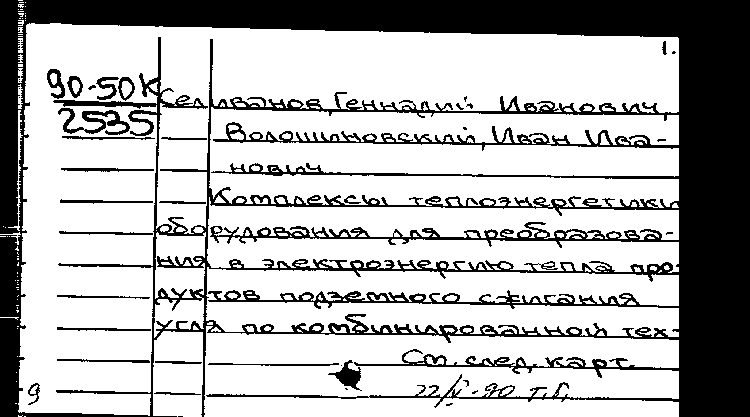 1.
90-50К
2535
Селиванов, Геннадий Иванович,
Волошиновский, Иван Ива-
нович.
Комплексы теплоэнергетики
оборудования для преобразова-
ния в электроэнергию тепла про-
дуктов подземного сжигания
угля по комбинированной тех-
См. след. карт.
9
22/V-90 Т.Г.